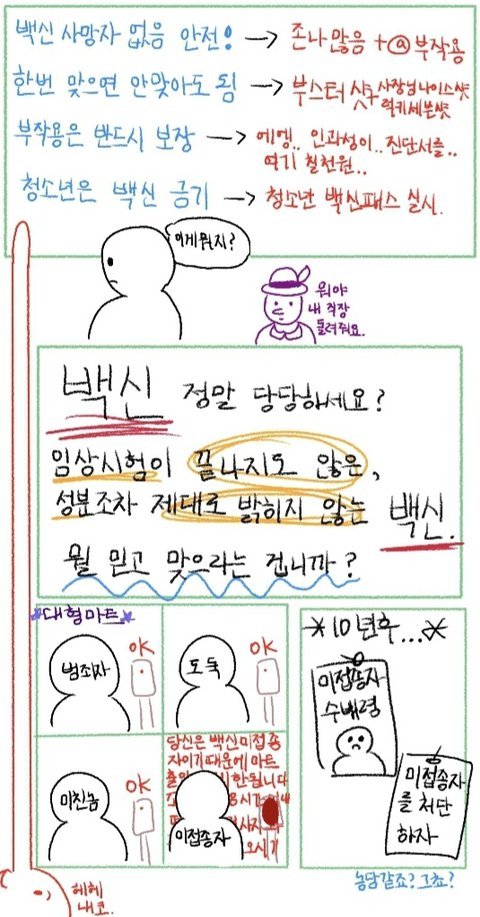 백신 사망자 없음 안전! → 존나 많음 + @ 부작용
한번 맞으면 안맞아도 됨 → 부스터 샷! 사장님나이스샷
럭키세븐샷
부작용은 반드시 보장 → 에엥.. 인과성이.. 진단서를..
여기 칠천원..
청소년은 백신 금기 → 청소년 백신패스 실시.
이게뭔지?
뭐야
내 직장
돌려줘요.
백신 정말 당당하세요?
임상시험이 끝나지도 않은,
성분조차 제대로 밝히지 않는 백신.
뭘 믿고 맞으라는 겁니까?
*대형마트*
범죄자
OK
도둑
OK
미친놈
OK
당신은 백신미접종
자이기때문에 마트
미접종자
*10년후...*
미접종자
수배령
미접종자
를 처단
하자
농담같죠? 그쵸?
헤헤
내코.